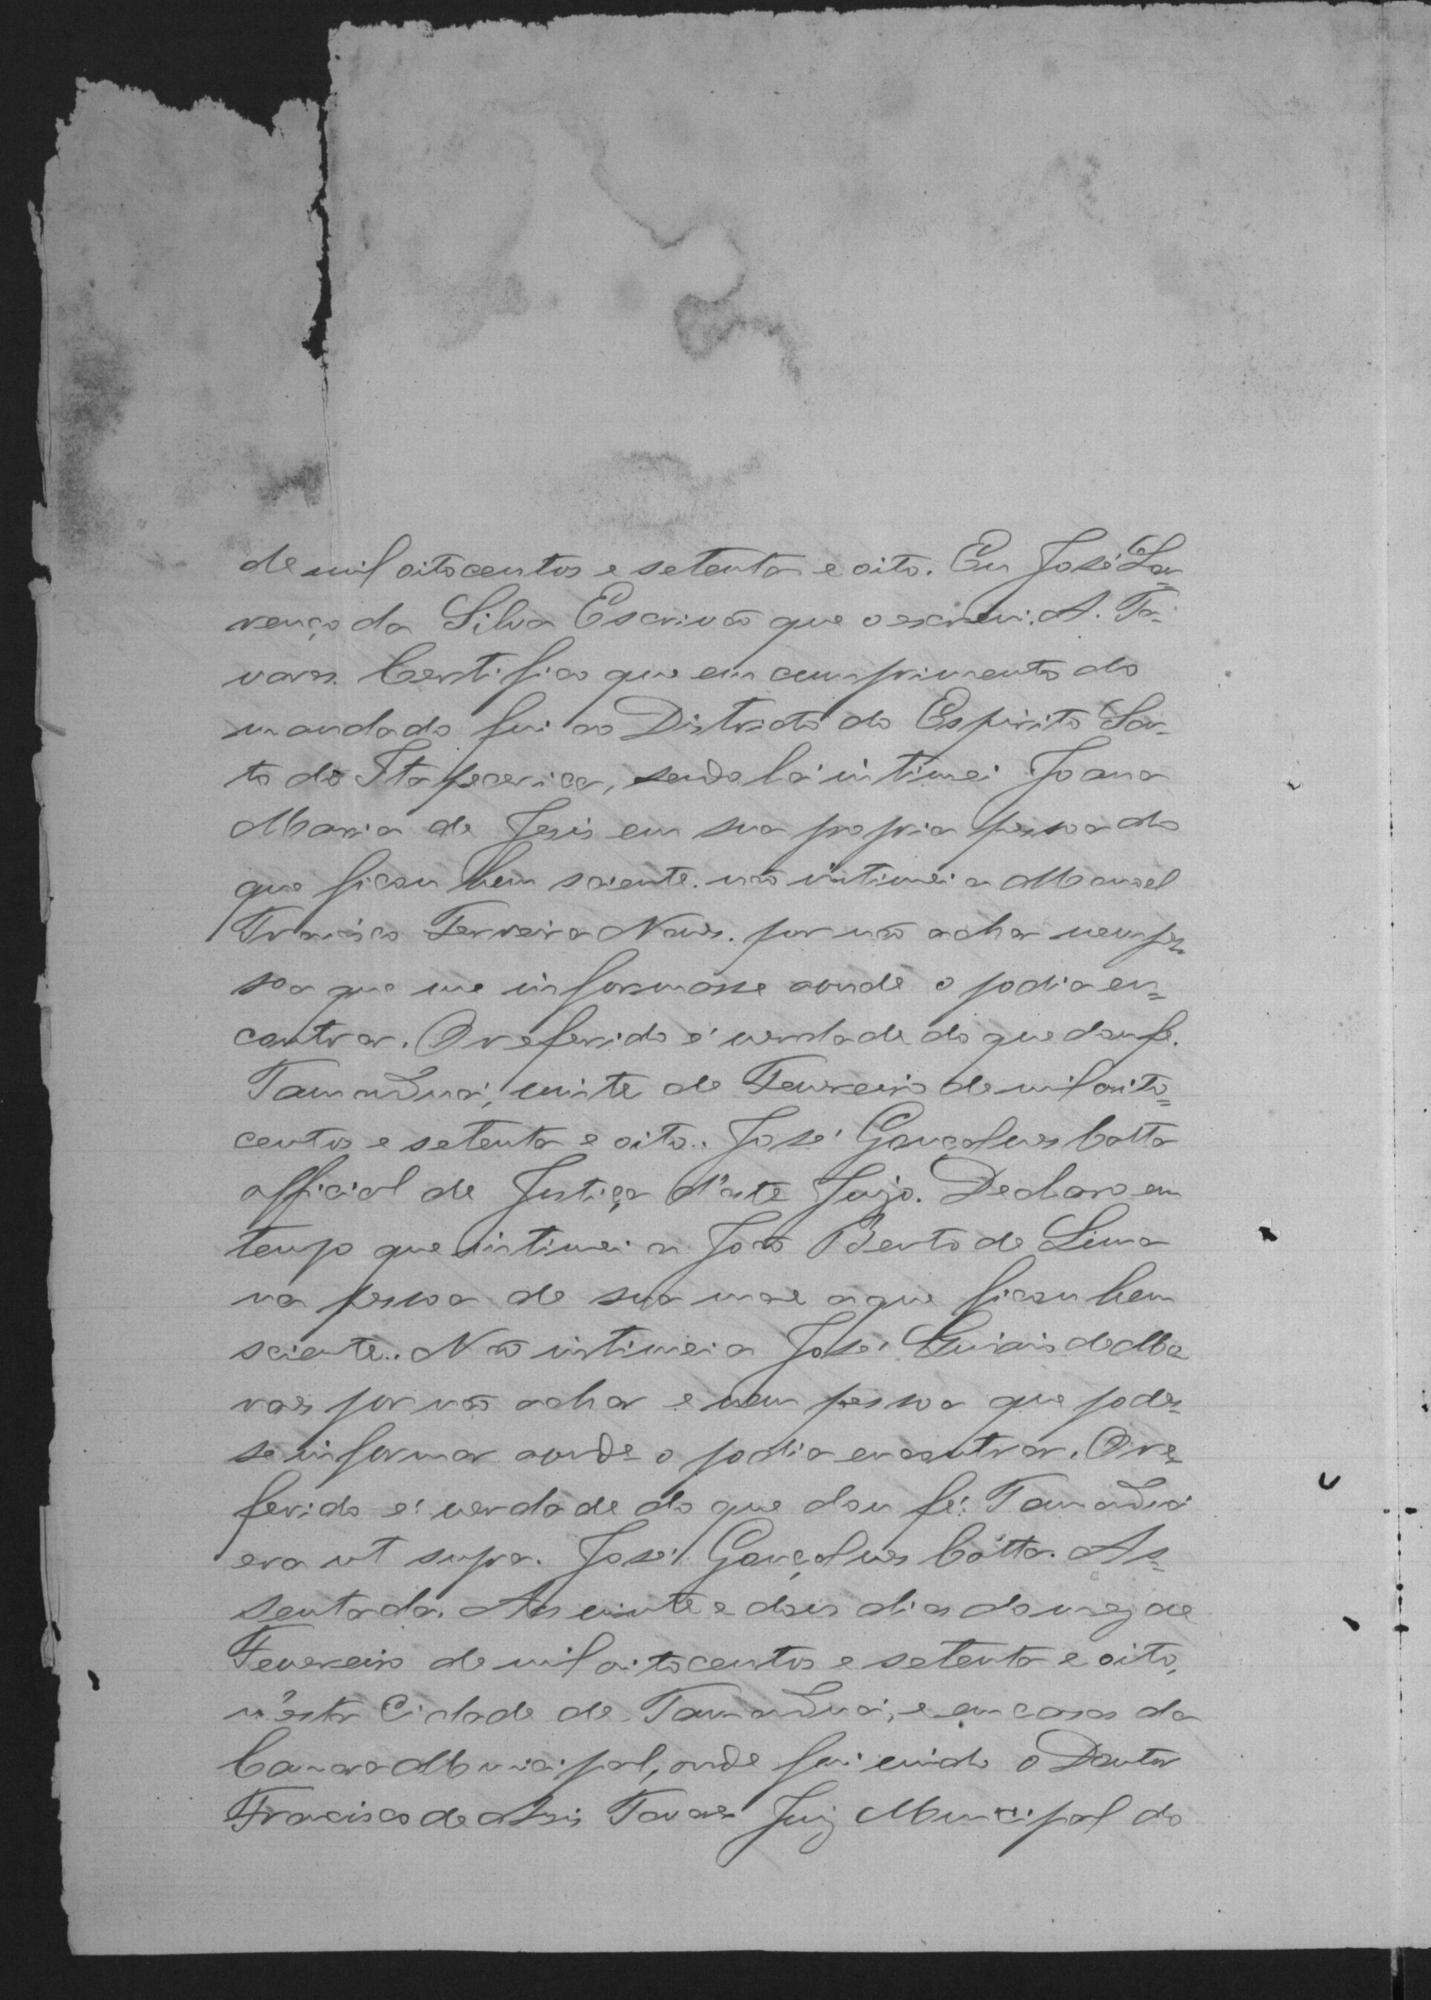 de mil oitocentos e setenta e oito. Eu José Lou-
renço da Silva Escrivão que o escrevi. A. Ta-
vares. Certifico que em cumprimento do
mandado fui ao Districto do Espirito San-
to do Itapecerica, sendo lá intimei Joana
Maria de Jesus em sua propria pessoa do
que ficou bem sciente. não intimei a Manoel
Francisco Ferreira Naves. por não achar nem pes-
soa que me informasse aonde o podia en=
contrar. O referido é verdade do que dou fé.
Tamanduá, vinte de Fevereiro de mil oito=
centos e setenta e oito.. José Gonçalves Cotta
official de Justiça d'este Juizo. Declaro em
tempo que intimei a João Bento de Lima
na pessoa de sua mae a que ficou bem
sciente.. Não intimei a José de Mo
raes por não achar e nem pessoa que podes-
se informar aonde o podia encontrar. O re-
ferido é verdade do que dou fé. Tamanduá
era ut supra. José Gonçalves Cótta. As-
sentada. Aos vinte e dois dias do mez de
Fevereiro de mil oitocentos e setenta e oito,
n'esta Cidade de Tamanduá, e em casas da
Camara Municipal, onde foi vindo o Doutor
Francisco de Assis Tavares Juiz Municipal do